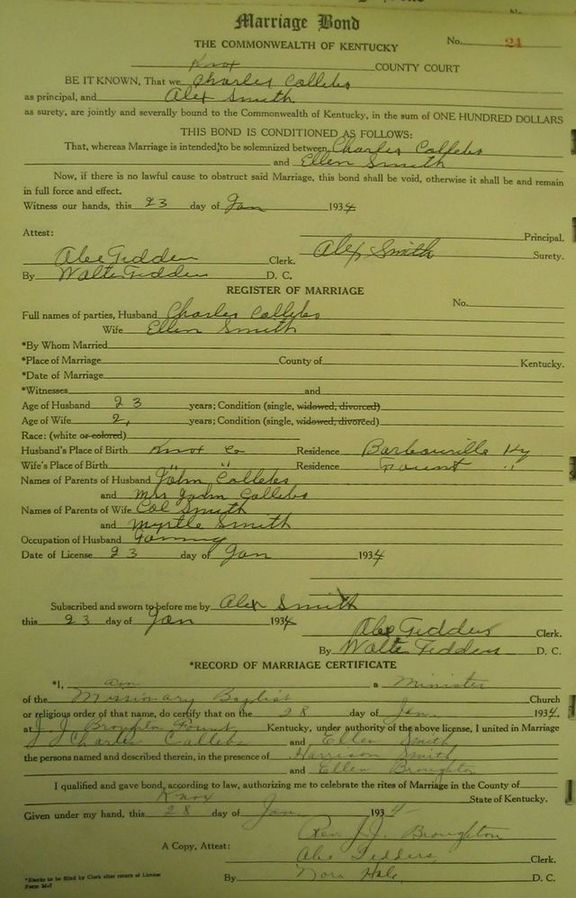 Marriage Bond
THE COMMONWEALTH OF KENTUCKY
No. 21
Knox COUNTY COURT
BE IT KNOWN, That we Charles Callebs
as principal, and Alex Smith
as surety, are jointly and severally bound to the Commonwealth of Kentucky, in the sum of ONE HUNDRED DOLLARS
THIS BOND IS CONDITIONED AS FOLLOWS:
That, whereas Marriage is intended to be solemnized between Charles Callebs
and Ellen Smith
Now, if there is no lawful cause to obstruct said Marriage, this bond shall be void, otherwise it shall be and remain
in full force and effect.
Witness our hands, this 23 day of Jan 1934
Attest: Principal.
Abe Gedden Clerk. Alex Smith Surety.
By Walter Gedden D. C.
REGISTER OF MARRIAGE
No.
Full names of parties, Husband Charles Callebs
Wife Ellen Smith
*By Whom Married
*Place of Marriage County of Kentucky.
*Date of Marriage
*Witnesses and
Age of Husband 23 years; Condition (single, widowed, divorced)
Age of Wife 2 years; Condition (single, widowed, divorced)
Race: (white or colored)
Husband's Place of Birth Knox Co Residence Barbourville Ky
Wife's Place of Birth " " Residence Fount "
Names of Parents of Husband John Callebs
and Mrs John Callebs
Names of Parents of Wife Col Smith
and Myrtle Smith
Occupation of Husband
Date of License 23 day of Jan 1934
Subscribed and sworn to before me by Alex Smith
this 23 day of Jan 1934
Abe Gedden Clerk.
By Walter Gedden D. C.
*RECORD OF MARRIAGE CERTIFICATE
*I, am a Minister
of the Missionary Baptist Church
or religious order of that name, do certify that on the 28 day of Jan 1934.
at J. J. Broughton Fount Kentucky, under authority of the above license, I united in Marriage
Charles Callebs and Ellen Smith
the persons named and described therein, in the presence of Harrison Smith
and Ellen Broughton
I qualified and gave bond, according to law, authorizing me to celebrate the rites of Marriage in the County of
Knox State of Kentucky.
Given under my hand, this 28 day of Jan 1934
Rev J. J. Broughton
A Copy, Attest: Abe Gedders, Clerk.
By Nora Hale, D. C.
*Blanks to be filled by Clerk after return of License
Form M-7